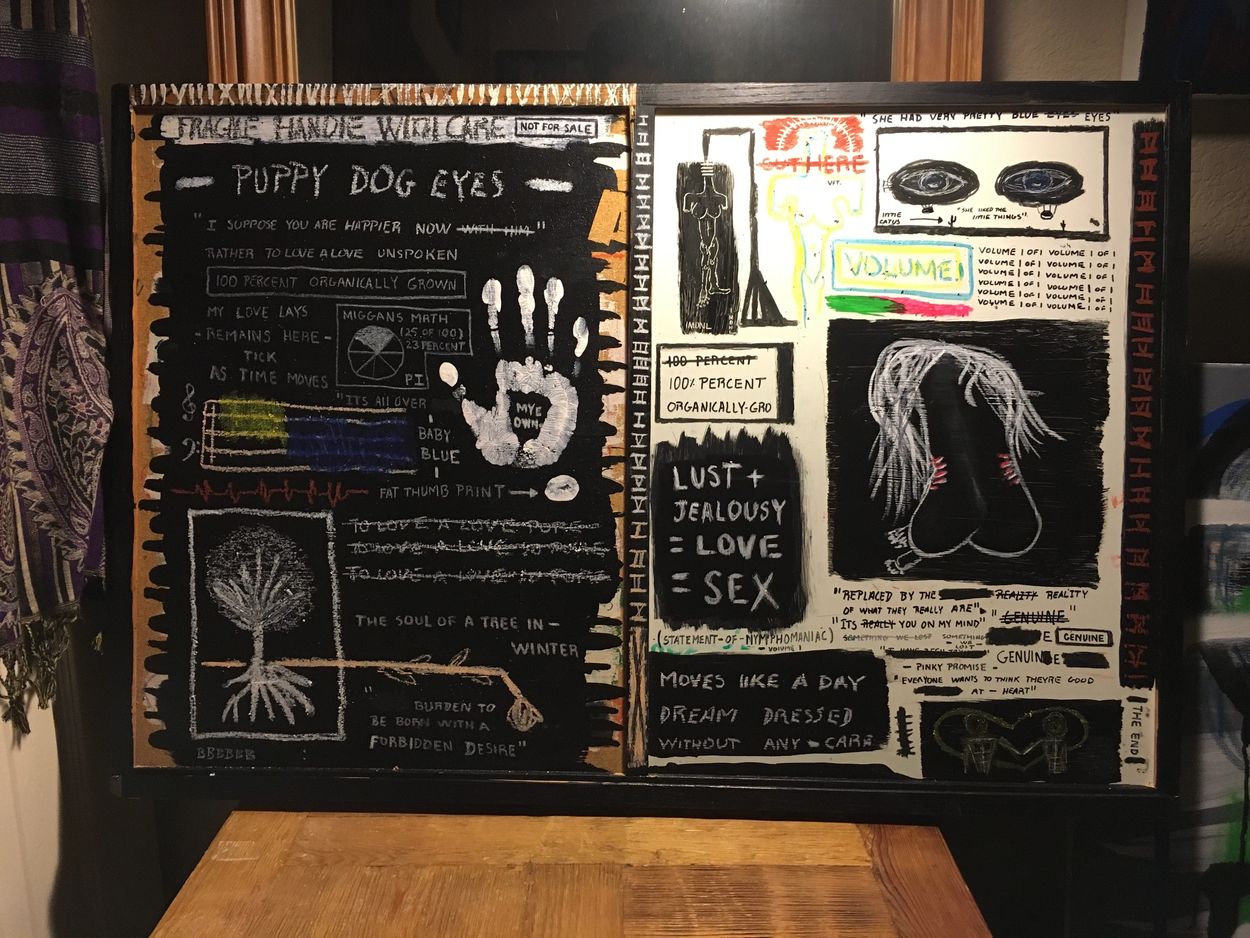 FRAGILE HANDLE WITH CARE
NOT FOR SALE
PUPPY DOG EYES
"I SUPPOSE YOU ARE HAPPIER NOW WITH HIM"
RATHER TO LOVE A LOVE UNSPOKEN
100 PERCENT ORGANICALLY GROWN
MY LOVE LAYS
- REMAINS HERE -
TICK
AS TIME MOVES
MIGGANS MATH
(25 OF 100)
23 PERCENT
PI
"IT'S All OVER
BABY
BLUE
MYE
OWN
FAT THUMB PRINT
TO LOVE A LOVE
TO LOVE A LOVE
TO LOVE A LOVE
THE SOUL OF A TREE IN -
WINTER
"BURDEN TO
BE BORN WITH A
FORBIDDEN DESIRE"
"SHE HAD VERY PRETTY BLUE EYES EYES
CUT HERE
"SHE LIKED THE
little THINGS"
little
CATUS
VOLUME I
VOLUME I OF I VOLUME I OF I
VOLUME I OF I VOLUME I OF I
VOLUME I OF I VOLUME I OF I
VOLUME I OF I VOLUME I OF I
VOLUME I OF I VOLUME I OF I
VOLUME I OF I VOLUME I OF I
100 PERCENT
100% PERCENT
ORGANICALLY-GRO
LUST +
JEALOUSY
= LOVE
= SEX
(STATEMENT-OF-NYMPHOMANIAC)
- VOLUME I
MOVES LIKE A DAY
DREAM DRESSED
WITHOUT ANY - CARE
"REPLACED BY THE REALITY REALITY
OF WHAT THEY REALLY ARE"
"GENUINE"
"ITS REALLY YOU ON MY MIND"
SOMETHING WE LOST SOMETHING
WE
LOST
E
GENUINE
- PINKY PROMISE -
GENUINE
"EVERYONE WANTS TO THINK THEYRE GOOD
AT - HEART"
THE END